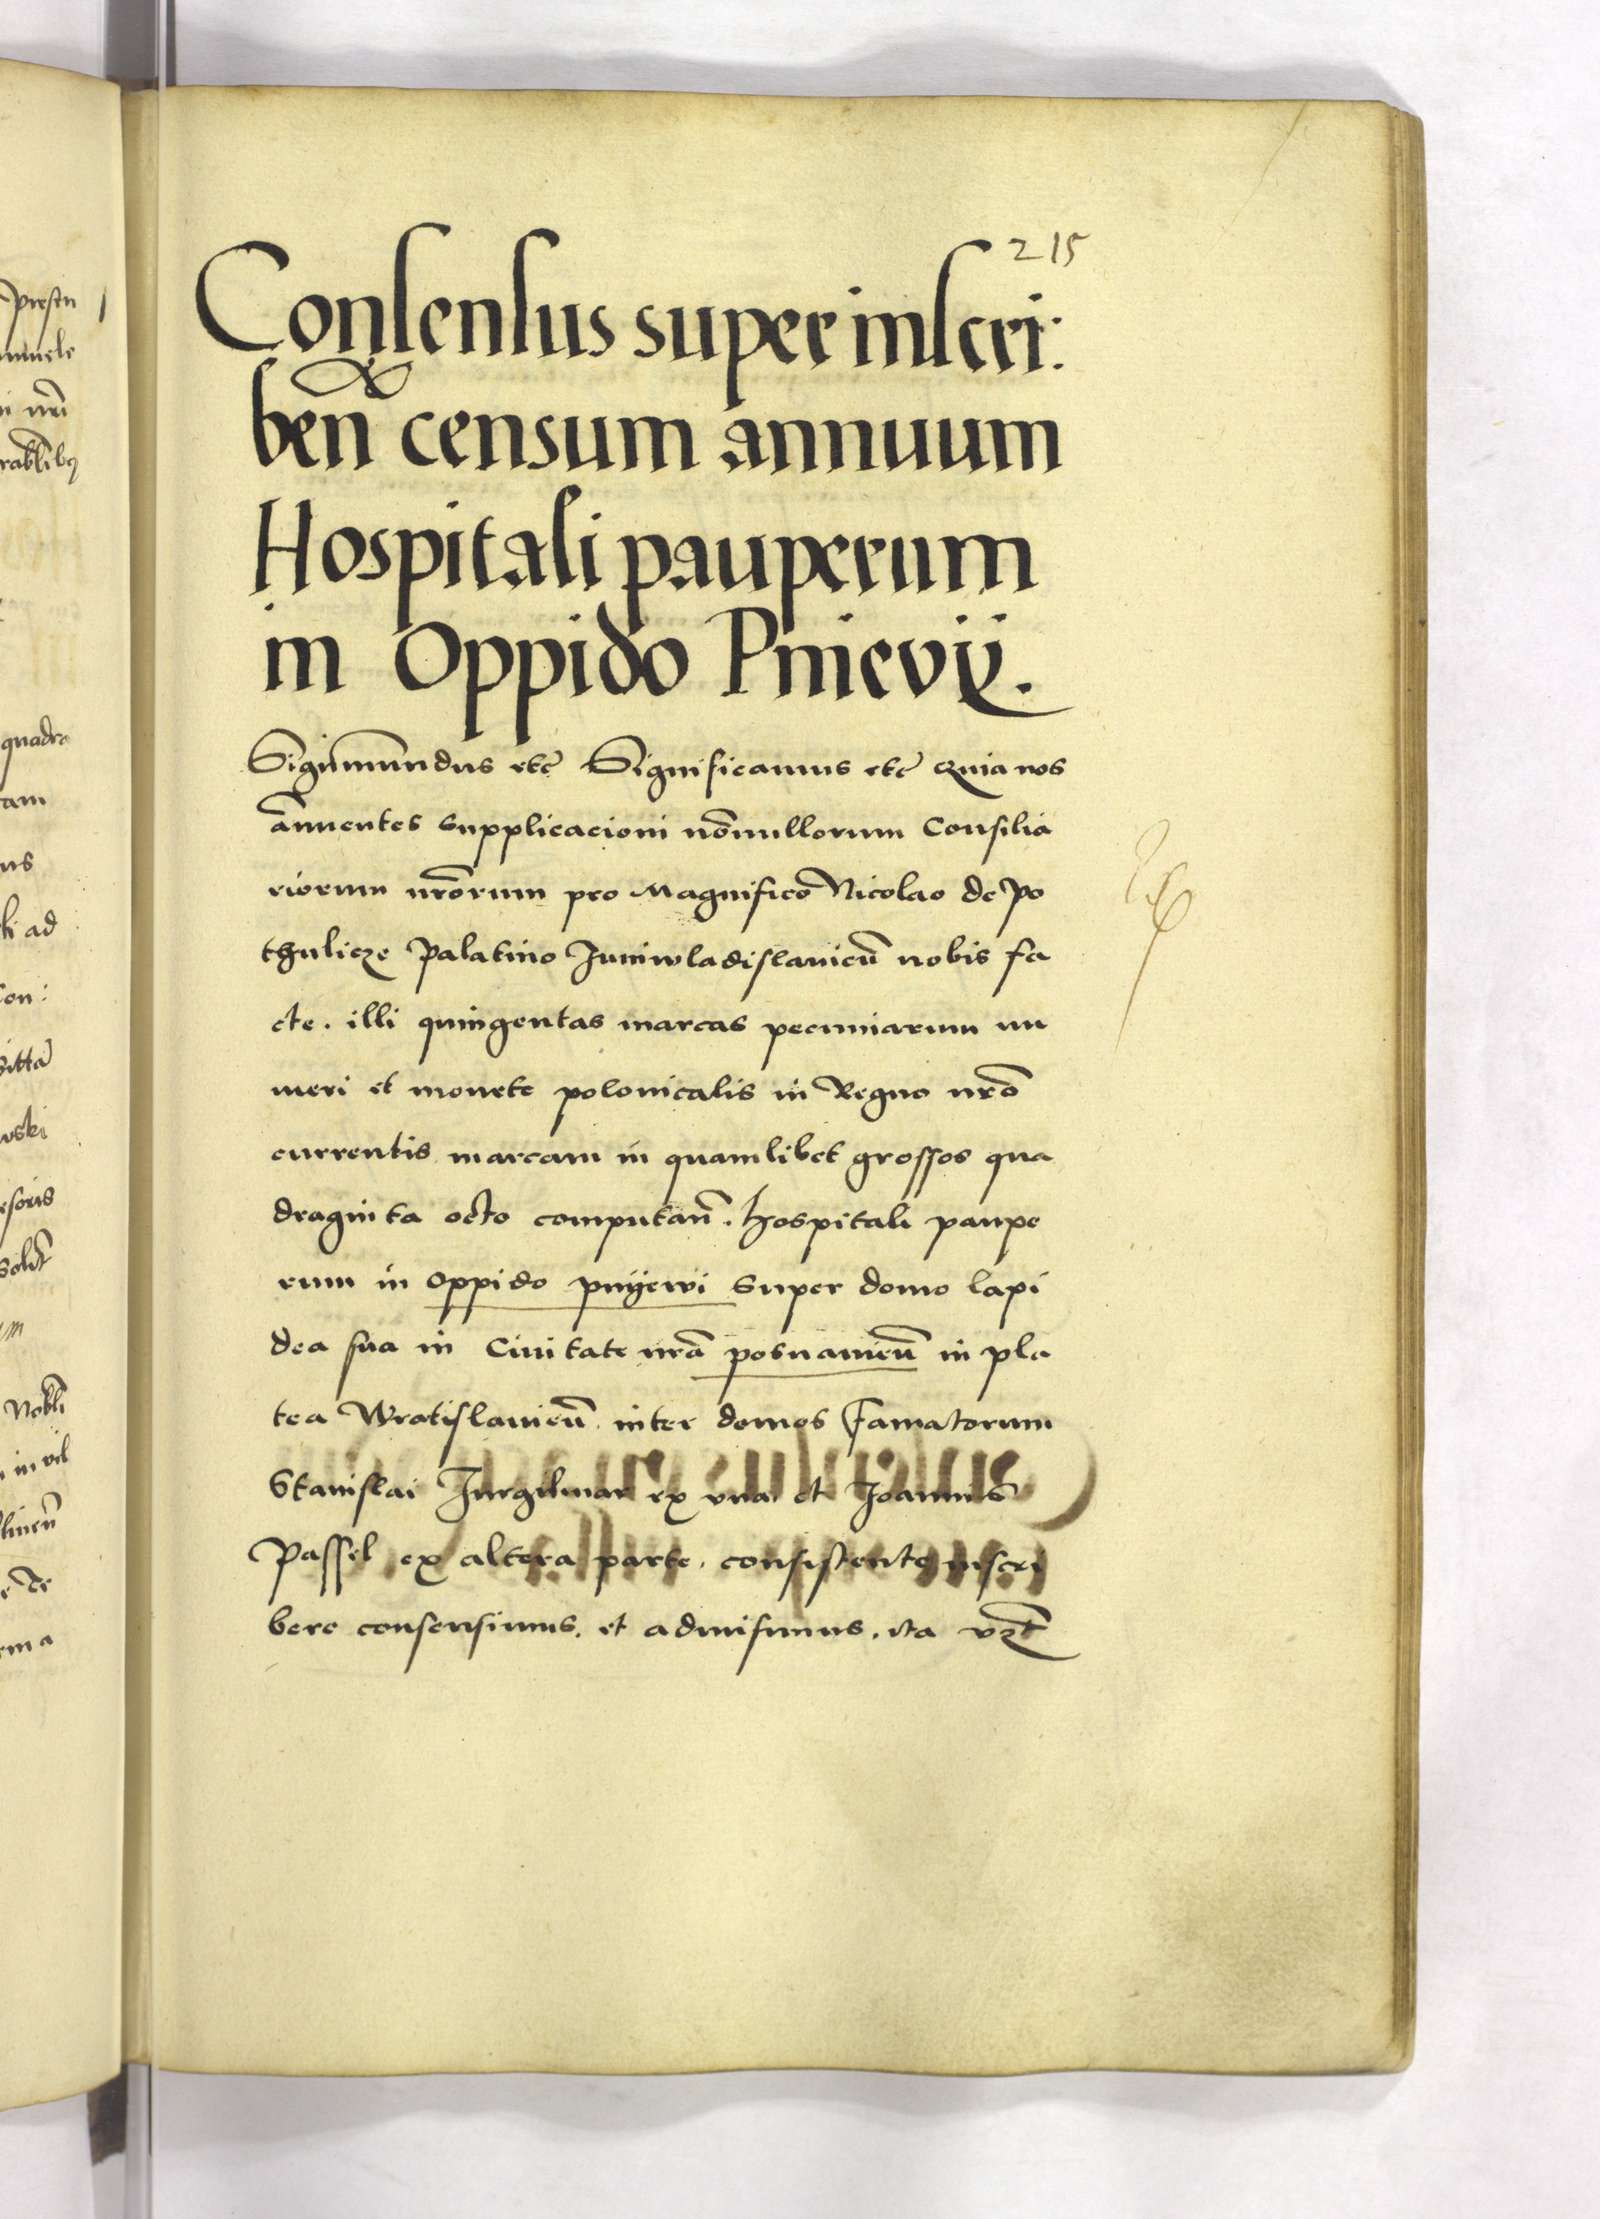 215
Consensus super inscri:
ben̄ censum annuum
Hospitali pauperum
in Oppido Pnievij.
Sigismundus etc̄ Significamus etc̄ Quia nos
an̄nuentes supplicacioni nōnullorum Consilia
riorum nr̄orum pro Magnifico Nicolao de Po
thulicze Palatino Juniwladislauien̄ nobis fa
cte. illi quingentas marcas pecuniarum nu
meri et monete polonicalis in Regno nr̄o
currentis marcam in quamlibet grossos qua
draginta octo computan̄. Hospitali paupe
rum in oppido pnijewi super domo lapi
dea sua in Ciuitate nr̄a posnanien̄ in pla
tea Wratislauien̄ inter domos famatorum
Stanislai ex vna et Joannis
Passel ex altera parte. consistente inscri
bere consensimus. et admisimus. ita vt̄
presen
nr̄i
quadra
tam
us
ad
Con:
wski
in vil
ema